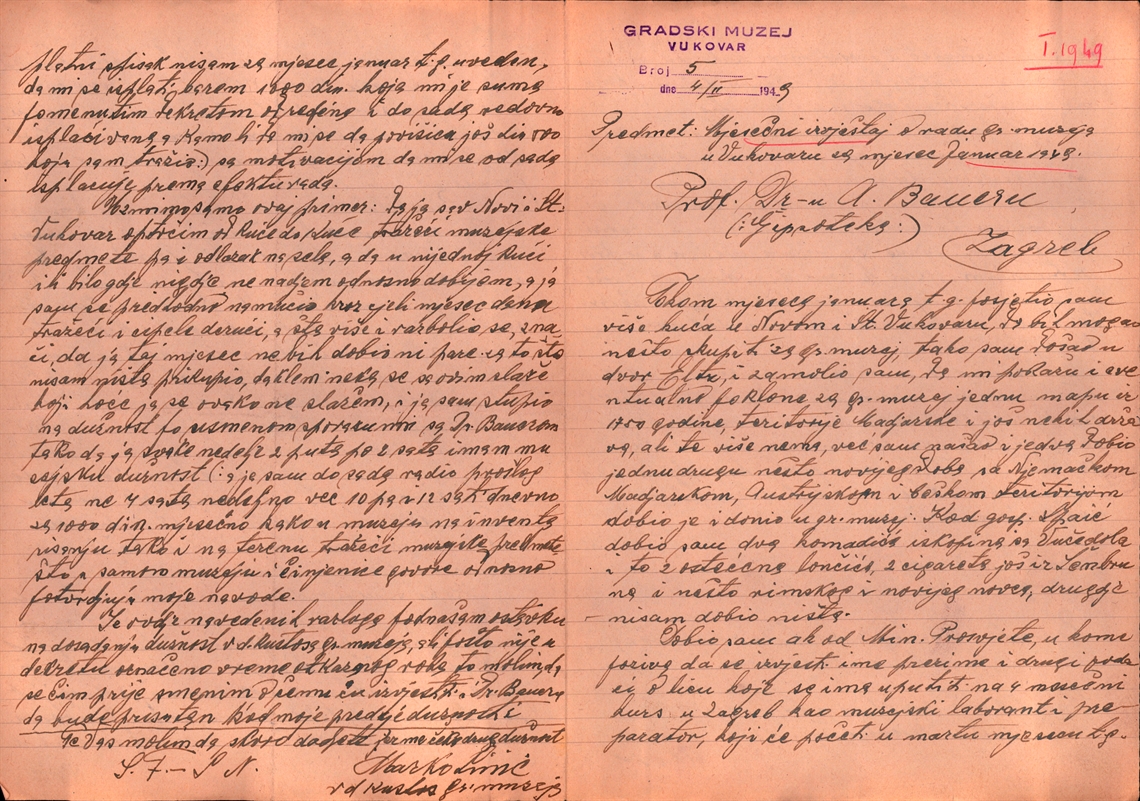 platni spisak nisam za mjesec januar t.g. uveden,
da mi se isplati barem 1000 din. koja mi je suma
pomenutim dekretom određena i do sada redovno
isplaćivana a kamo li da mi se da povišica još din 1000
koju sam tražio:) sa motivacijom da mi se od sada
isplaćuje prema efektu rada.
Uzmimo samo ovaj primer: Da ja sav Novi i St.
Vukovar optrčim od kuće do kuće tražeći muzejske
predmete pa i odlazak na sela, a da u nijednoj kući
ili bilo gdje nigdje ne nadjem odnosno dobijem, a ja
sam se predhodno namučio kroz cjeli mjesec dana
tražeći i cipele deruči, a šta više i razbolio se, zna
či, da ja taj mjesec nebih dobio ni pare za to što
nisam ništa prikupio, daklem neka se sa ovim slaže
koji hoće ja se ovako ne slažem, i ja sam stupio
na dužnost po usmenom sporazumu sa Dr. Bauerom
tako da ja svake nedelje 2 puta po 2 sata imam mu
zejsku dužnost (: a ja sam do sada radio prošlog
leta ne 4 sata nedeljno već 10 pa i 12 sati dnevno
za 1000 din. mjesečno kako u muzeju na inventa
risanju tako i na terenu tražeći muzejske predmete
što u samom muzeju i činjenice govore odnosno
potvrdjuju moje navode.
Iz ovdje navedenih razloga podnašam ostavku
na dosadanju dužnost v.d. kustosa gr. muzeja, ali pošto nije u
dekretu označeno vreme otkaznog roka to molim da
se čim prije smenim o čemu ću izvjestiti i Dr. Bauera
da bude prisutan kod moje predaje dužnosti
te Vas molim da skoro dodjete jer me čeka druga dužnost
S. F. – S. N.
Marko Linić
v d kustos gr. muzeja
GRADSKI MUZEJ
VUKOVAR
I. 1949
Broj 5
dne 4/II 1949
Predmet: Mjesečni izvještaj o radu gr. muzeja
u Vukovaru za mjesec Januar 1949.
Prof. Dr-u A. Baueru
(: Gipsoteka :)
Zagreb
Tokom mjeseca januara t.g. posjetio sam
više kuća u Novom i St. Vukovaru, da bih mogao
nešto skupiti za gr. muzej, tako sam došao u
dvor Eltz, i zamolio sam, da mi pokažu i eve
ntualno poklone za gr. muzej jednu mapu iz
godine, teritorije Madjarske i još nekih drža
va, ali te više nema, već sam našao i jedva dobio
jednu drugu nešto novijeg doba sa Njemačkom
Madjarskom, Austrijskom i češkom teritorijom
dobio je i donio u gr. muzej. Kod gosp. Spaić
dobio sam dva komadića iskopina sa Vučedola
i to 2 oštećena lončića, 2 cigareta još iz Lembru
na i nešto rimskog i novijeg novca, drugdje
nisam dobio ništa.
Dobio sam akt od Min. Prosvjete, u kome
poziva da se izvjesti ime prezime i drugi poda
ci o licu koje se ima uputiti na 4 mjesečni
kurs u Zagreb kao muzejski laborant i pre
parator, koji će početi u martu mjesecu t.g.